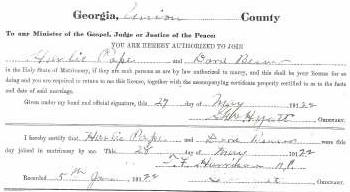 Georgia, Union County
To any Minister of the Gospel, Judge or Justice of the Peace:
YOU ARE HEREBY AUTHORIZED TO JOIN
Harlie Pope and Dora
in the Holy State of Matrimony, if they are such persons as are by law authorized to marry, and this shall be your license for so
doing and you are required to return to me this license, together with the accompanying certificate properly certified to as to the facts
and date of said marriage.
Given under my hand and official signature, this 27 day of May 1922
Hyatt Ordinary.
I hereby certify that Harlie Pope and Dora were
day joined in matrimony by me. This 28 day of May 1922
Recorded 5th June 1922 Ordinary.